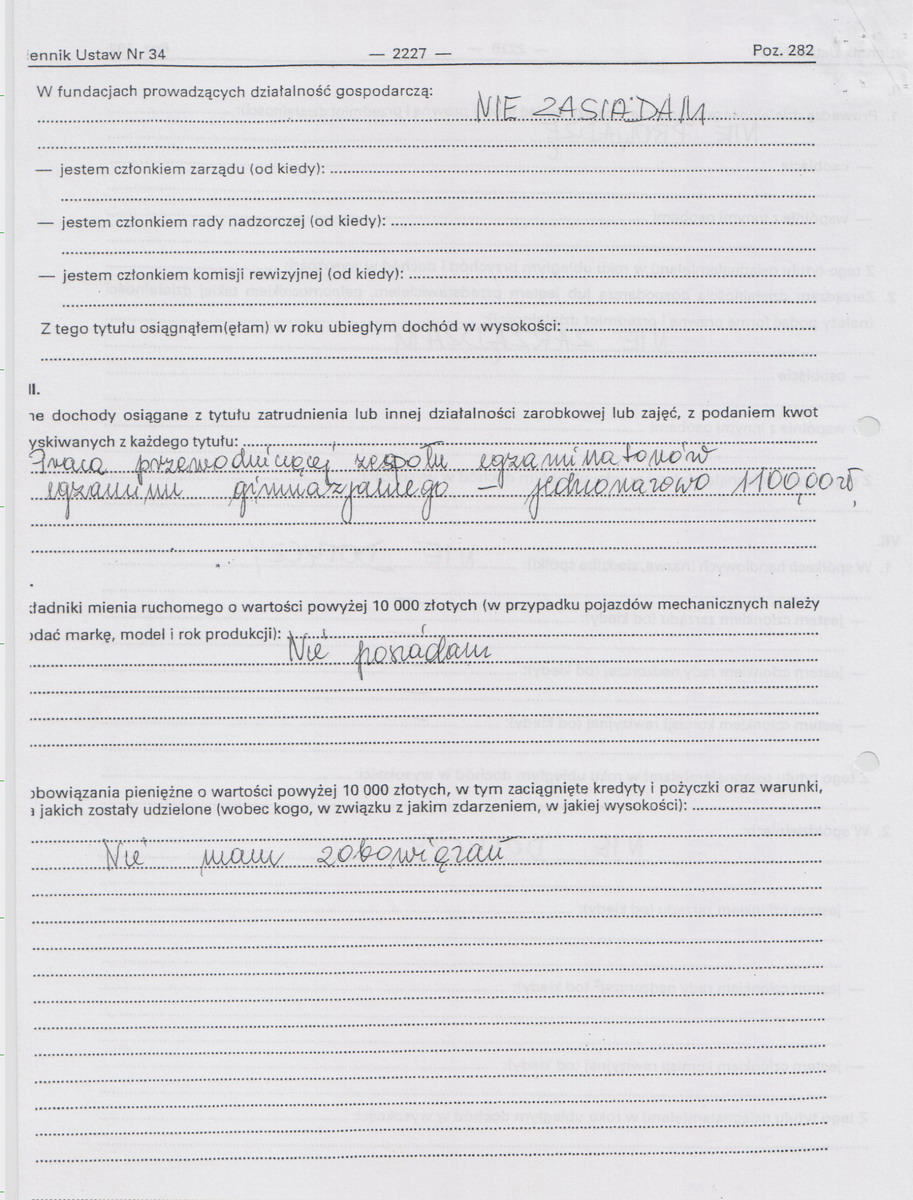 ennik Ustaw Nr 34 — 2227 — Poz. 282
W fundacjach prowadzących działalność gospodarczą:
NIE ZASIADAM
— jestem członkiem zarządu (od kiedy):
— jestem członkiem rady nadzorczej (od kiedy):
— jestem członkiem komisji rewizyjnej (od kiedy):
Z tego tytułu osiągnąłem(ęłam) w roku ubiegłym dochód w wysokości:
II.
ne dochody osiągane z tytułu zatrudnienia lub innej działalności zarobkowej lub zajęć, z podaniem kwot
yskiwanych z każdego tytułu:
Praca przewodniczącej zespołu egzaminatorów
egzaminu gimnazjalnego – jednorazowo 1100,00 zł,
kładniki mienia ruchomego o wartości powyżej 10 000 złotych (w przypadku pojazdów mechanicznych należy
odać markę, model i rok produkcji):
Nie posiadam
obowiązania pieniężne o wartości powyżej 10 000 złotych, w tym zaciągnięte kredyty i pożyczki oraz warunki,
a jakich zostały udzielone (wobec kogo, w związku z jakim zdarzeniem, w jakiej wysokości):
Nie mam zobowiązań